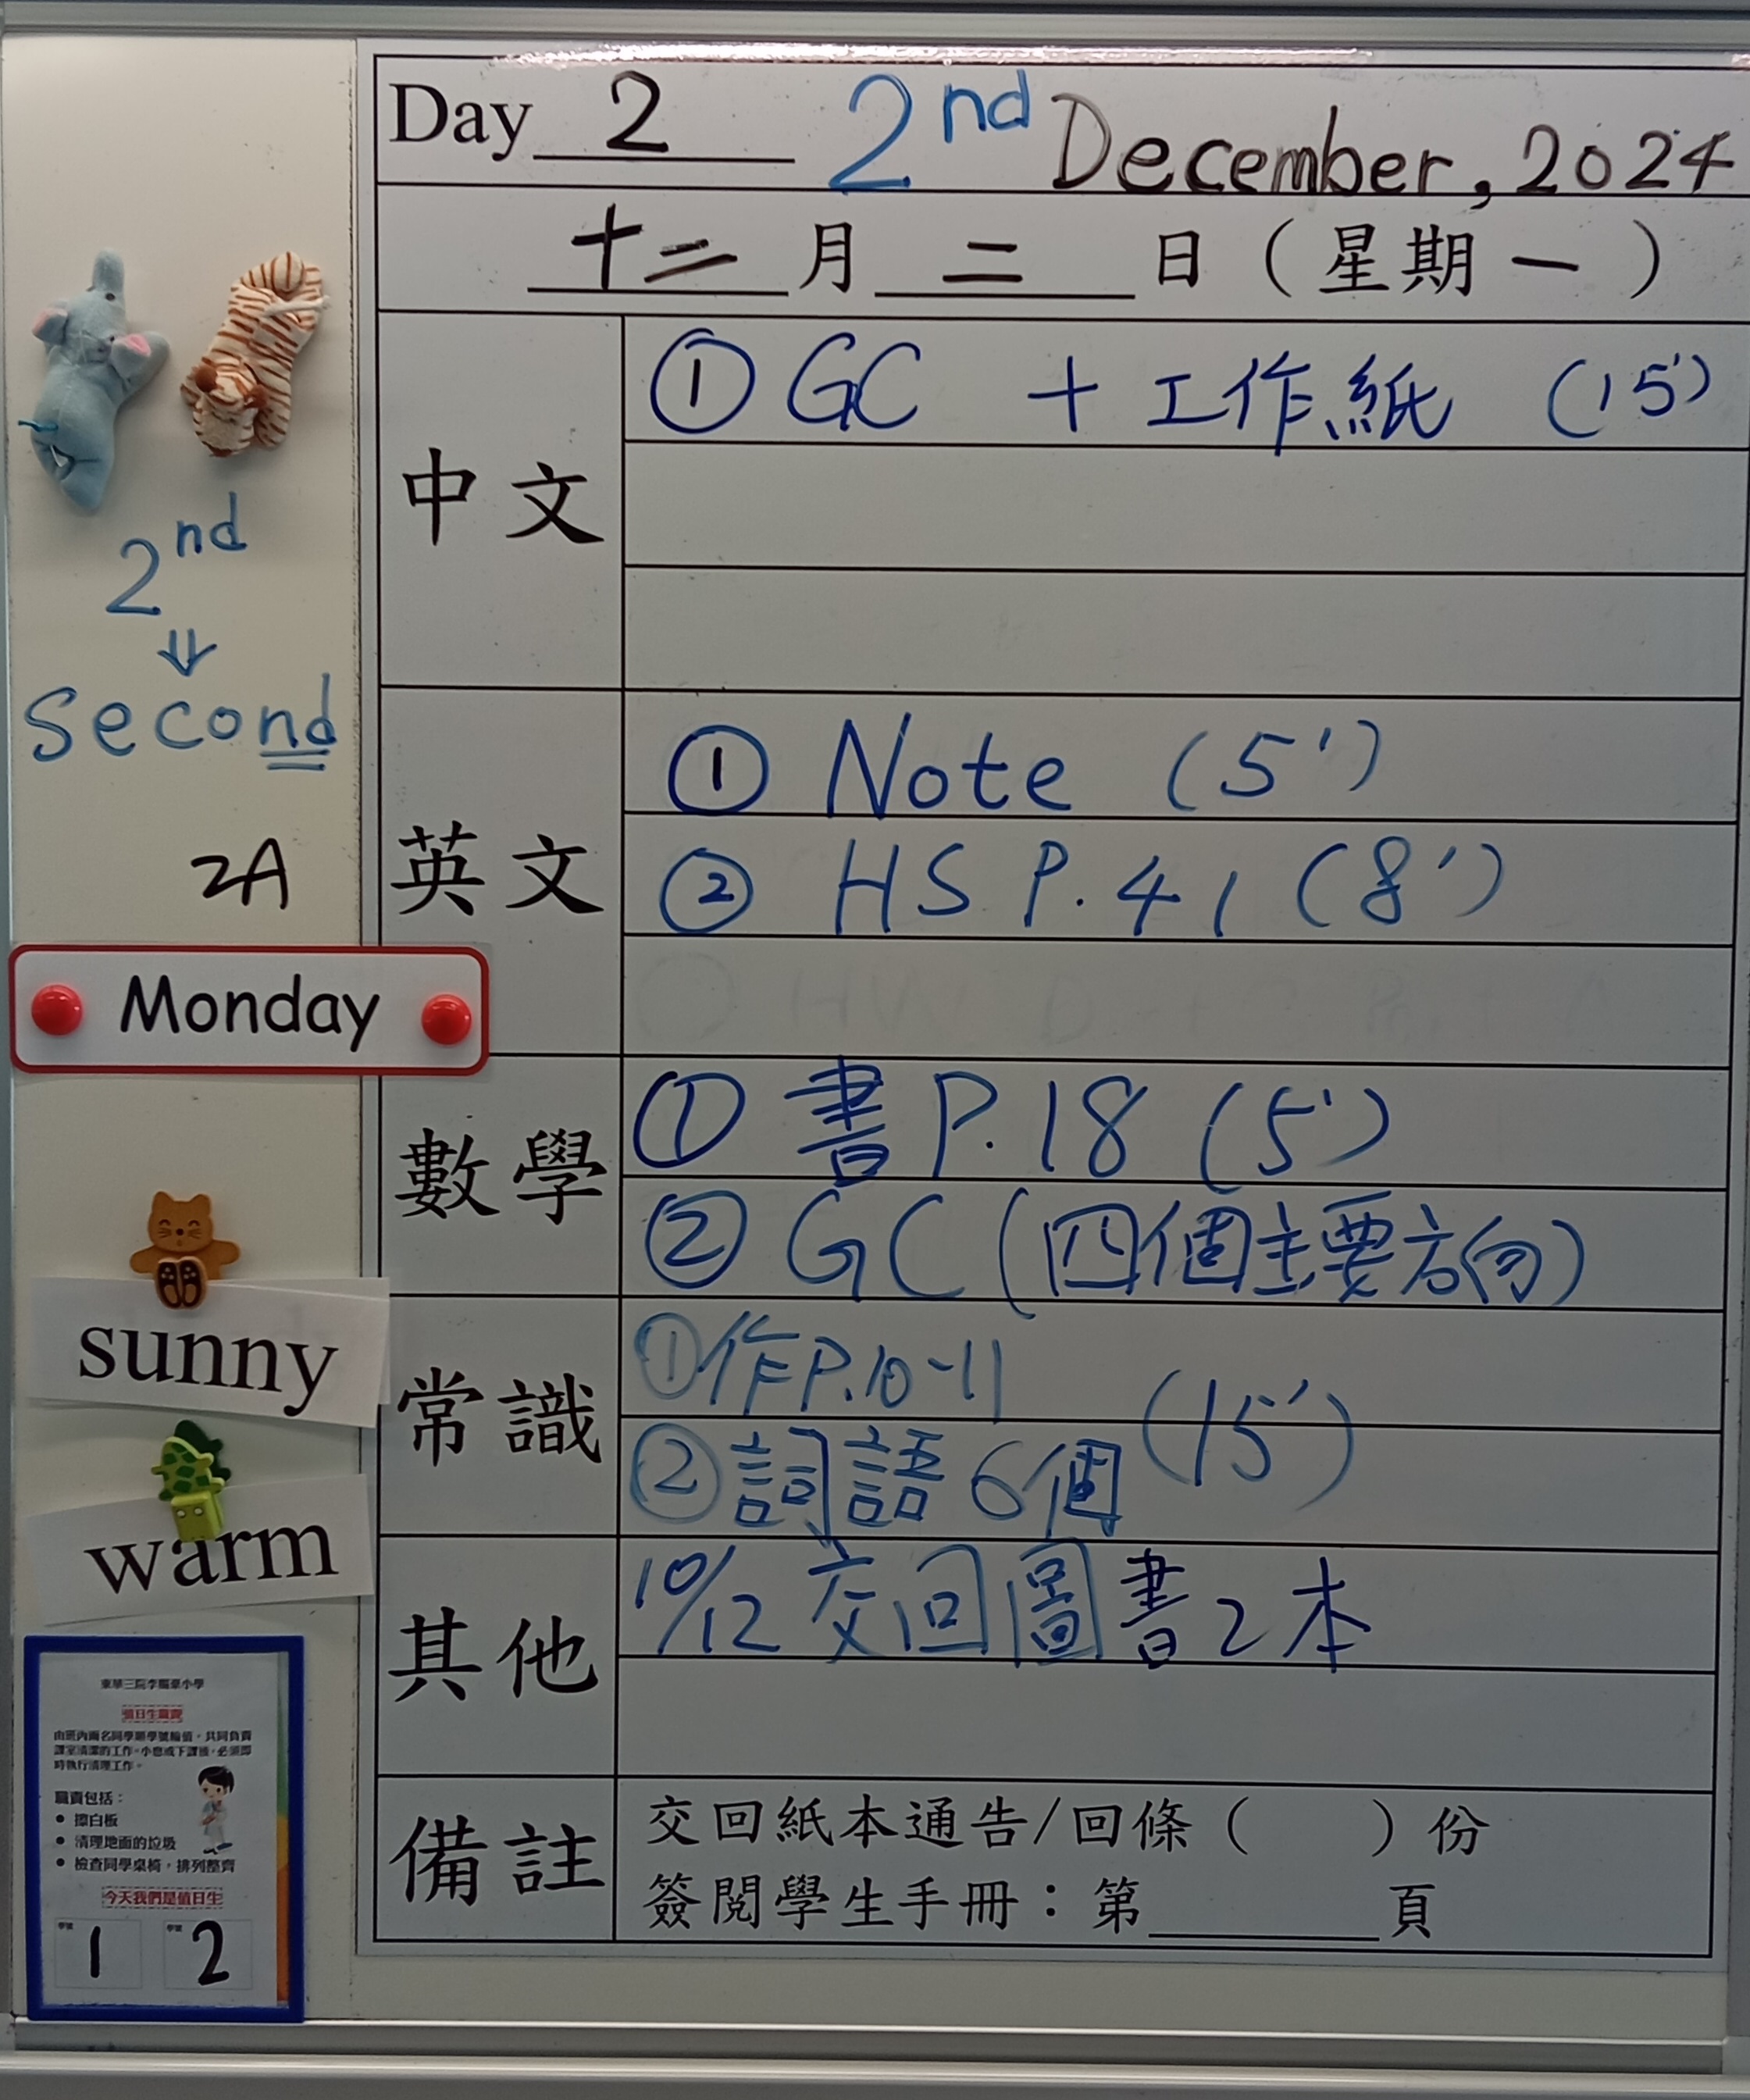 Day 2 2nd December, 2024
十二月二日（星期一）
中文
① GC + 工作紙 (15')
英文
① Note (5')
② HS P.41 (8')
數學
① 書P.18 (5')
② GC (四個主要方向)
常識
①作P.10-11
②詞語6個 (15')
其他
10/12 交回圖書2本
備註
交回紙本通告/回條（　　）份
簽閱學生手冊：第______頁
2nd
⇓
second
2A
Monday
sunny
warm
值日生職責
由班內兩名同學順學號輪值，共同負責
課室清潔的工作。小息或下課後，必須即
時執行清理工作。
職責包括：
• 擦白板
• 清理地面的垃圾
• 檢查同學桌椅，排列整齊
今天我們是值日生
學號 1 學號 2